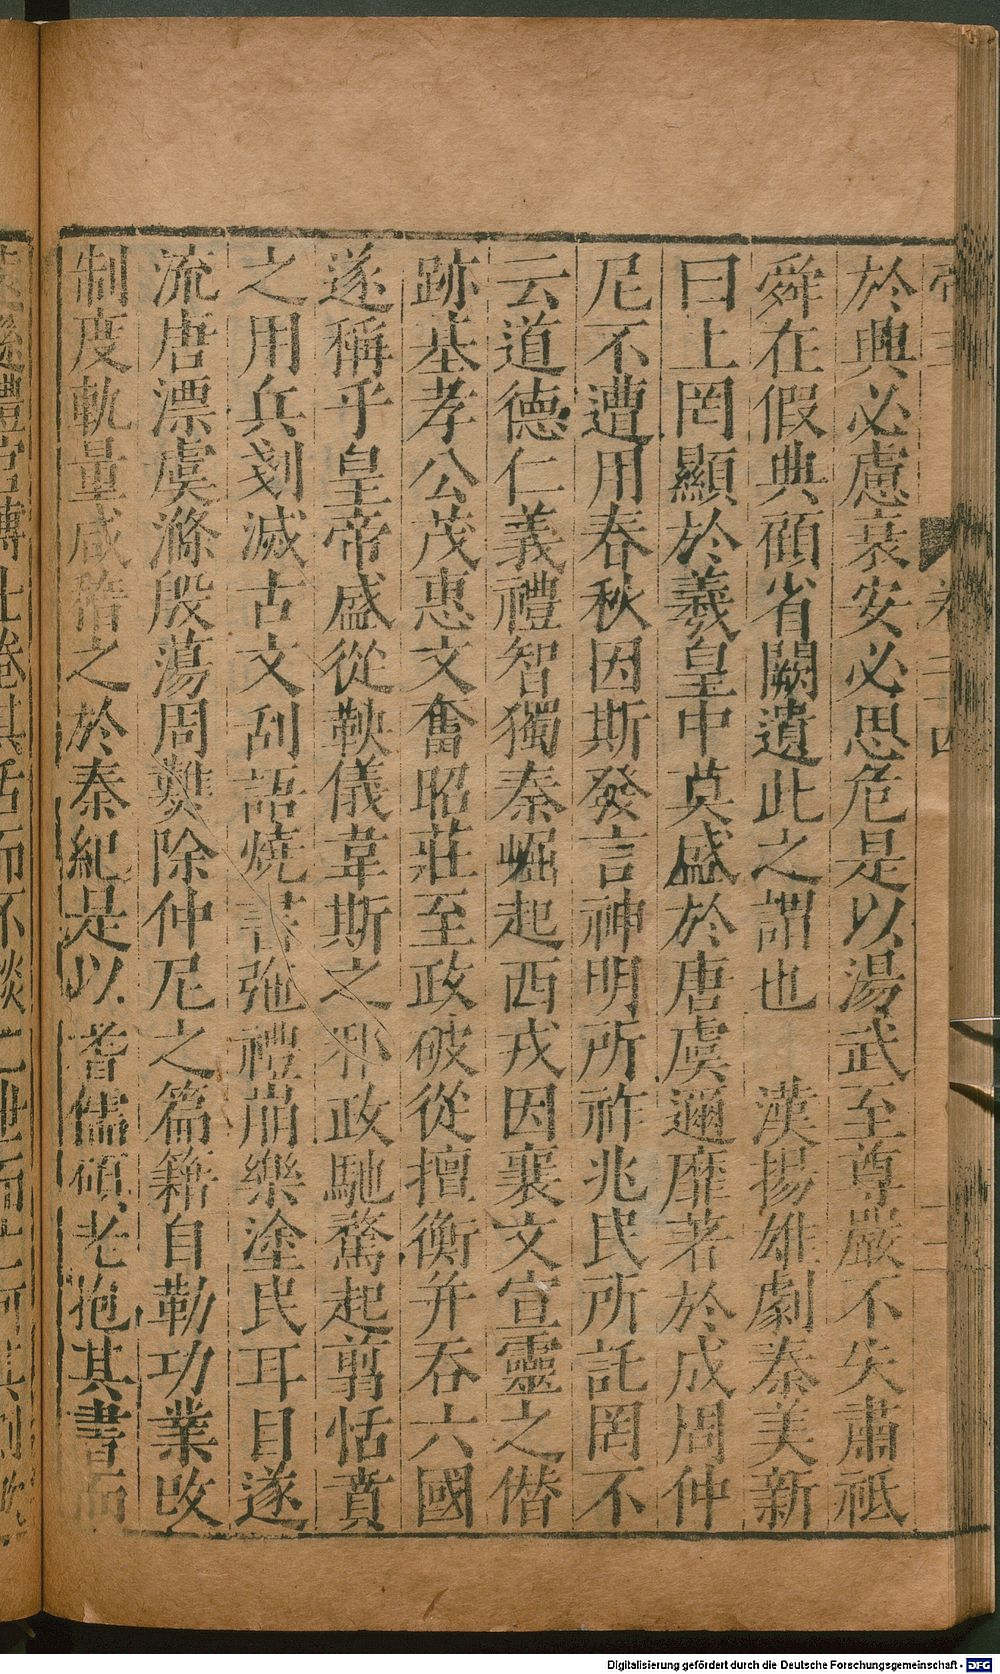 於興必慮衰安必思危是以湯武至尊嚴不失肅祗
舜在假典顧省闕遺此之謂也　漢揚雄劇秦美新
曰上罔顯於羲皇中莫盛於唐虞邇靡著於成周仲
尼不遭用春秋因斯發言神明所祚兆民所託罔不
云道德仁義禮智獨秦崛起西戎因襄文宣靈之僭
跡基孝公茂惠文奮昭莊至政破從擅衡并吞六國
遂稱乎皇帝盛從鞅儀韋斯之邪政馳騖起翦恬賁
之用兵剗滅古文刮語燒書弛禮崩樂塗民耳目遂
流唐漂虞滌殷蕩周難除仲尼之篇籍自勒功業改
制度軌量咸稽之於秦紀是以耆儒碩老抱其書而
Digitalisierung gefördert durch die Deutsche Forschungsgemeinschaft - DFG